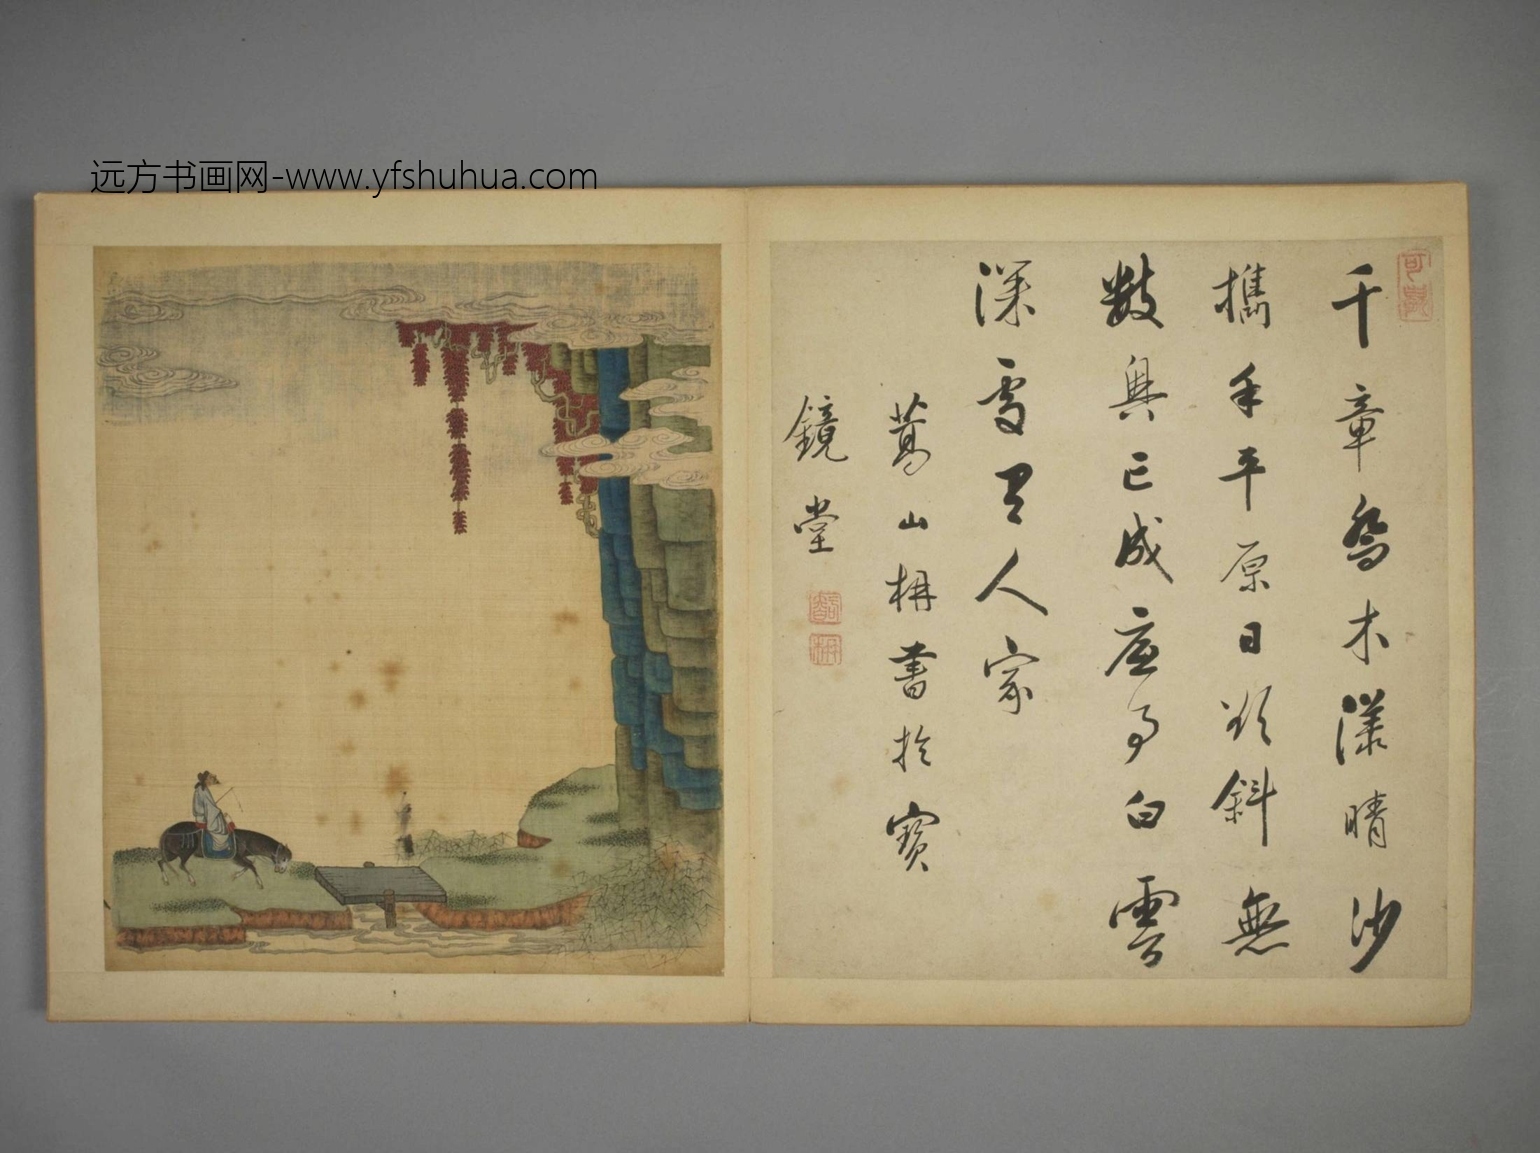 远方书画网-www.yfshuhua.com
千章喬木漾晴沙
攜手平原日欲斜無
數興亡成底事白雲
深處有人家
山枏書於寶
鏡堂